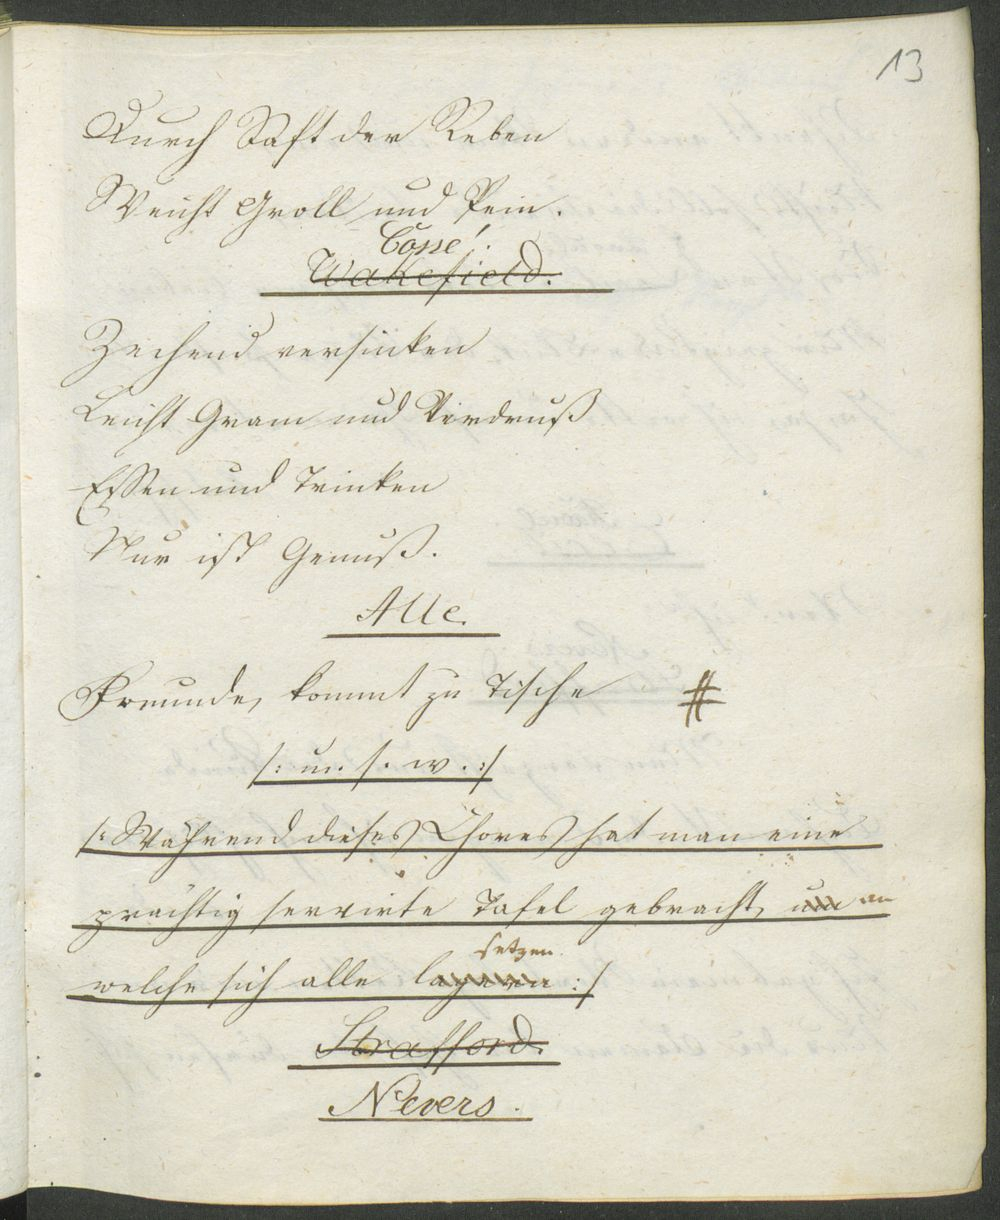 13
Durch Saft der Reben
Weicht Groll und Pein.
Cossé.
Wakefield.
Zechend versinken
Leicht Gram und Verdruß
Essen und Trinken
Nur ist Genuß.
Alle.
Freunde, kommt zu Tische #
/: u. s. w. :/
/: Während dieses Chores hat man eine
prächtig servirte Tafel gebracht, um an
setzen.
welche sich alle lagern :/
Strafford.
Nevers.